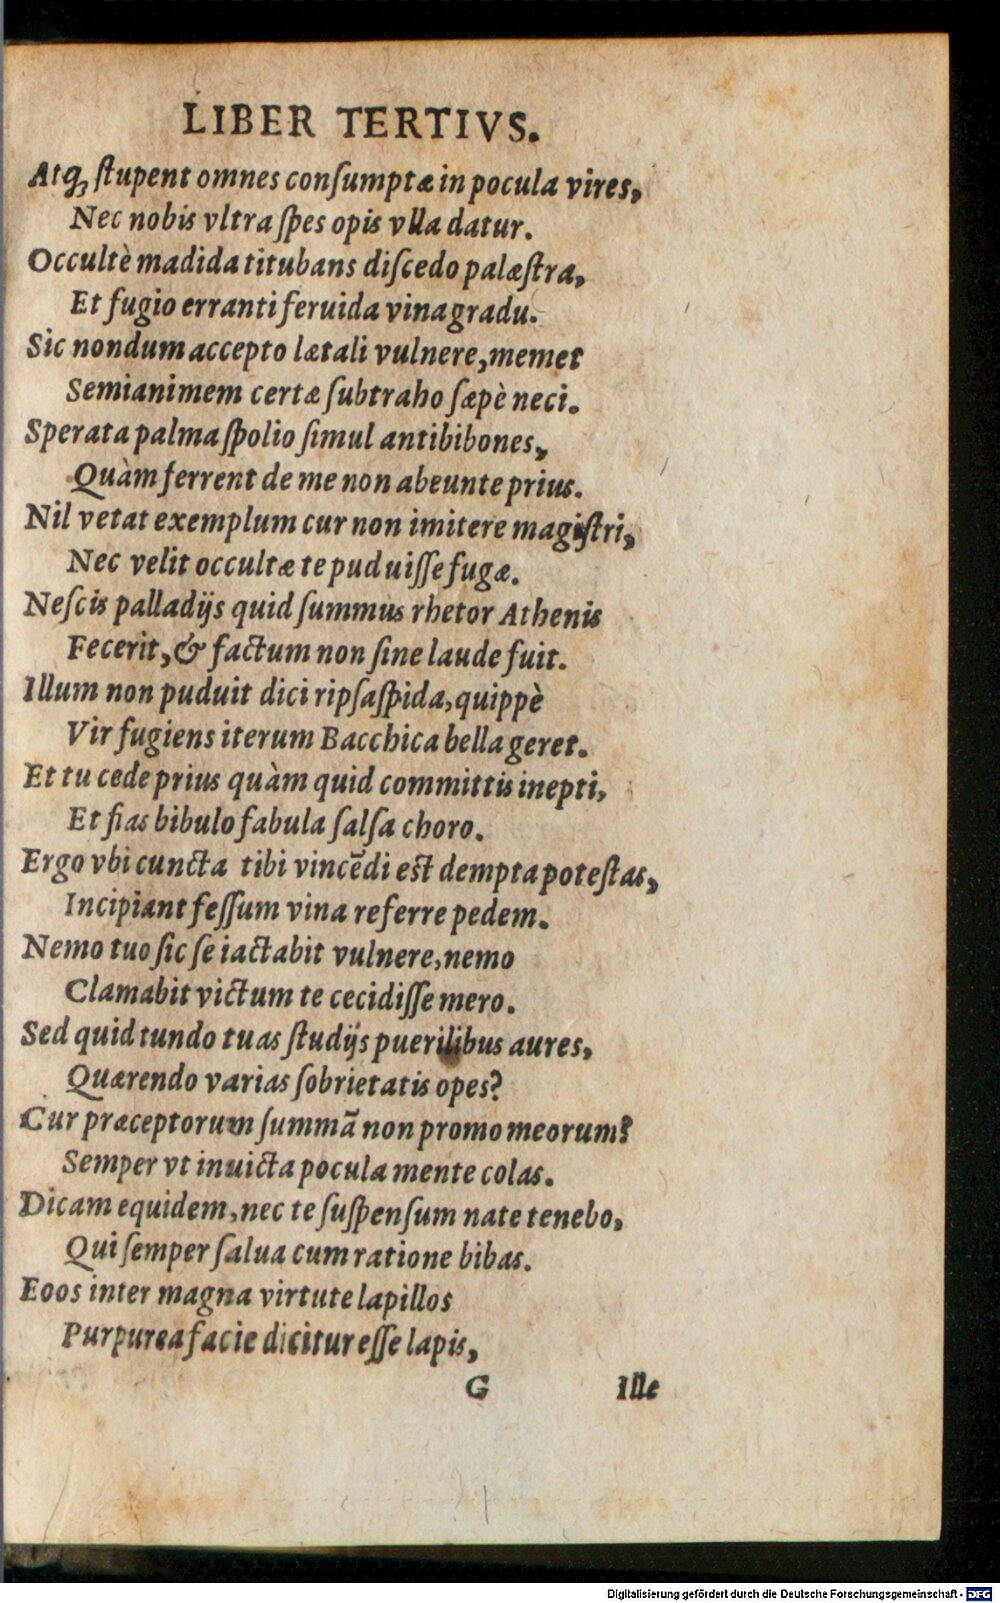 LIBER TERTIVS.
Atq; ſtupent omnes conſumptæ in pocula vires,
Nec nobis vltra ſpes opis vlla datur.
Occultè madida titubans diſcedo palæſtra,
Et fugio erranti feruida vina gradu.
Sic nondum accepto lætali vulnere, memet
Semianimem certæ ſubtraho ſæpè neci.
Sperata palma ſpolio ſimul antibibones,
Quàm ferrent de me non abeunte prius.
Nil vetat exemplum cur non imitere magiſtri,
Nec velit occultæ te puduiſſe fugæ.
Neſcis palladijs quid ſummus rhetor Athenis
Fecerit, & factum non ſine laude fuit.
Illum non puduit dici ripſaſpida, quippè
Vir fugiens iterum Bacchica bella geret.
Et tu cede prius quàm quid committis inepti,
Et fias bibulo fabula ſalſa choro.
Ergo vbi cuncta tibi vincēdi eſt dempta poteſtas,
Incipiant feſſum vina referre pedem.
Nemo tuo ſic ſe iactabit vulnere, nemo
Clamabit victum te cecidiſſe mero.
Sed quid tundo tuas ſtudijs puerilibus aures,
Quærendo varias ſobrietatis opes?
Cur præceptorum ſummā non promo meorum?
Semper vt inuicta pocula mente colas.
Dicam equidem, nec te ſuſpenſum nate tenebo,
Qui ſemper ſalua cum ratione bibas.
Eoos inter magna virtute lapillos
Purpurea facie dicitur eſſe lapis,
G Ille
Digitalisierung gefördert durch die Deutsche Forschungsgemeinschaft - DFG